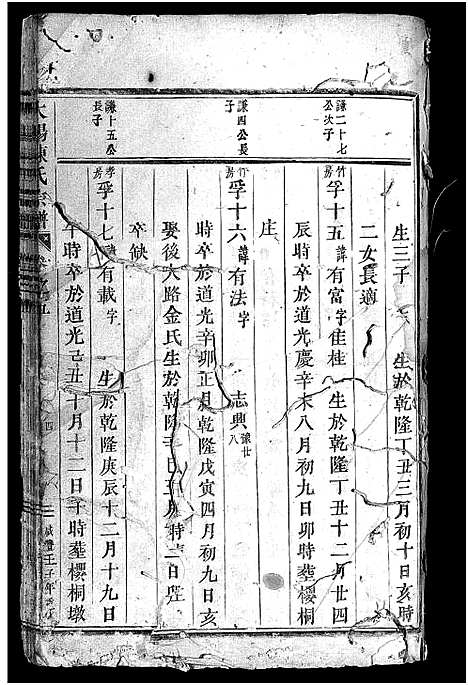 生三子 生於乾隆丁丑三月初十日亥時
二女長適
謙二十七公次子
竹房孚十五諱有富字佳桂 生於乾隆丁丑十二月廿四
辰時卒於道光慶辛未八月初九日卯時塟櫻桐
庄
謙四公長子
竹房孚十六諱有法字 志興豫廿八
時卒於道光辛卯正月乾隆戊寅四月初九日亥
娶後大路金氏生於乾隆辛巳五月 時 二日
卒缺
謙十五公長子
孝房孚十七諱有載字 生於乾隆庚辰十二月十九日
午時卒於道光己丑十月十二日子時塟櫻桐墩
大陽陳氏宗譜 卷之五
四
咸豐壬子年